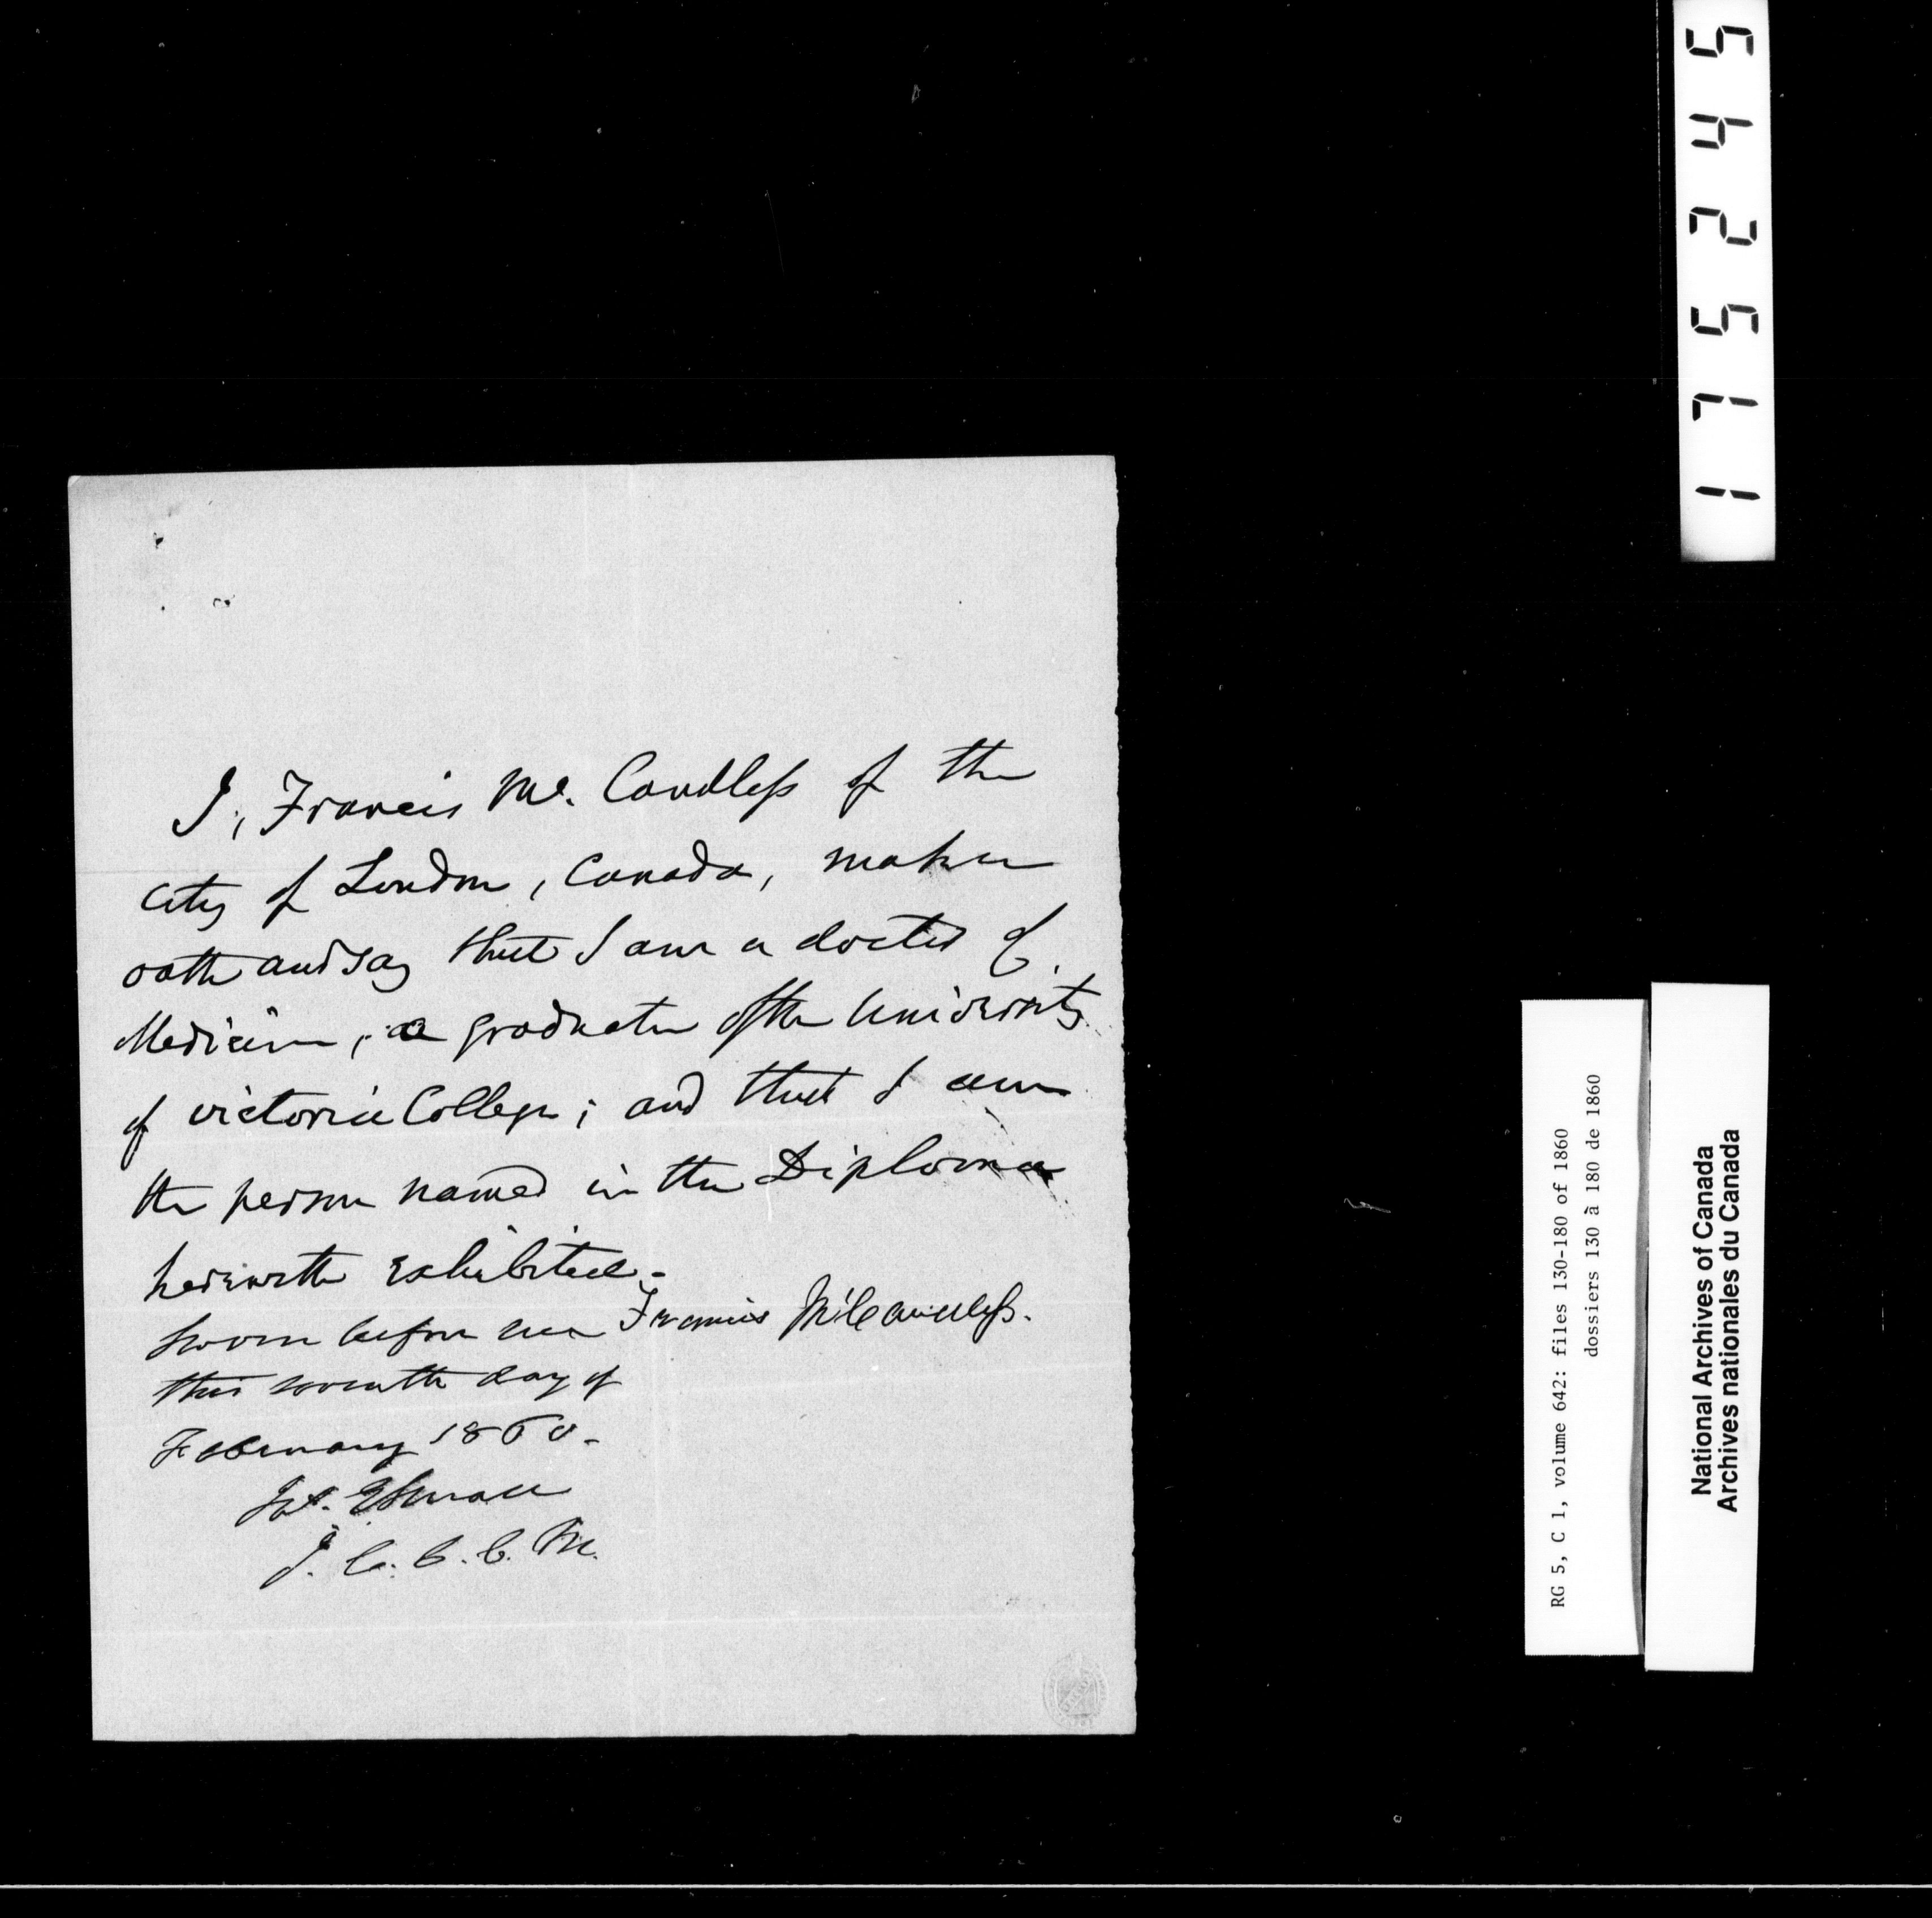 I, Francis Mc. Candless of the
City of London, Canada, maken
oath and say that I am a doctor of
Medicine, a graduate of the University
of victoria College; and that I am
the person named in the Diploma
herewith exhibited.-
Sworn before me Francis McCandless.
this seventh day of
February 1860.-
J. C. C. C. M.
175245
RG 5, C 1, volume 642: files 130-180 of 1860
dossiers 130 à 180 de 1860
National Archives of Canada
Archives nationales du Canada